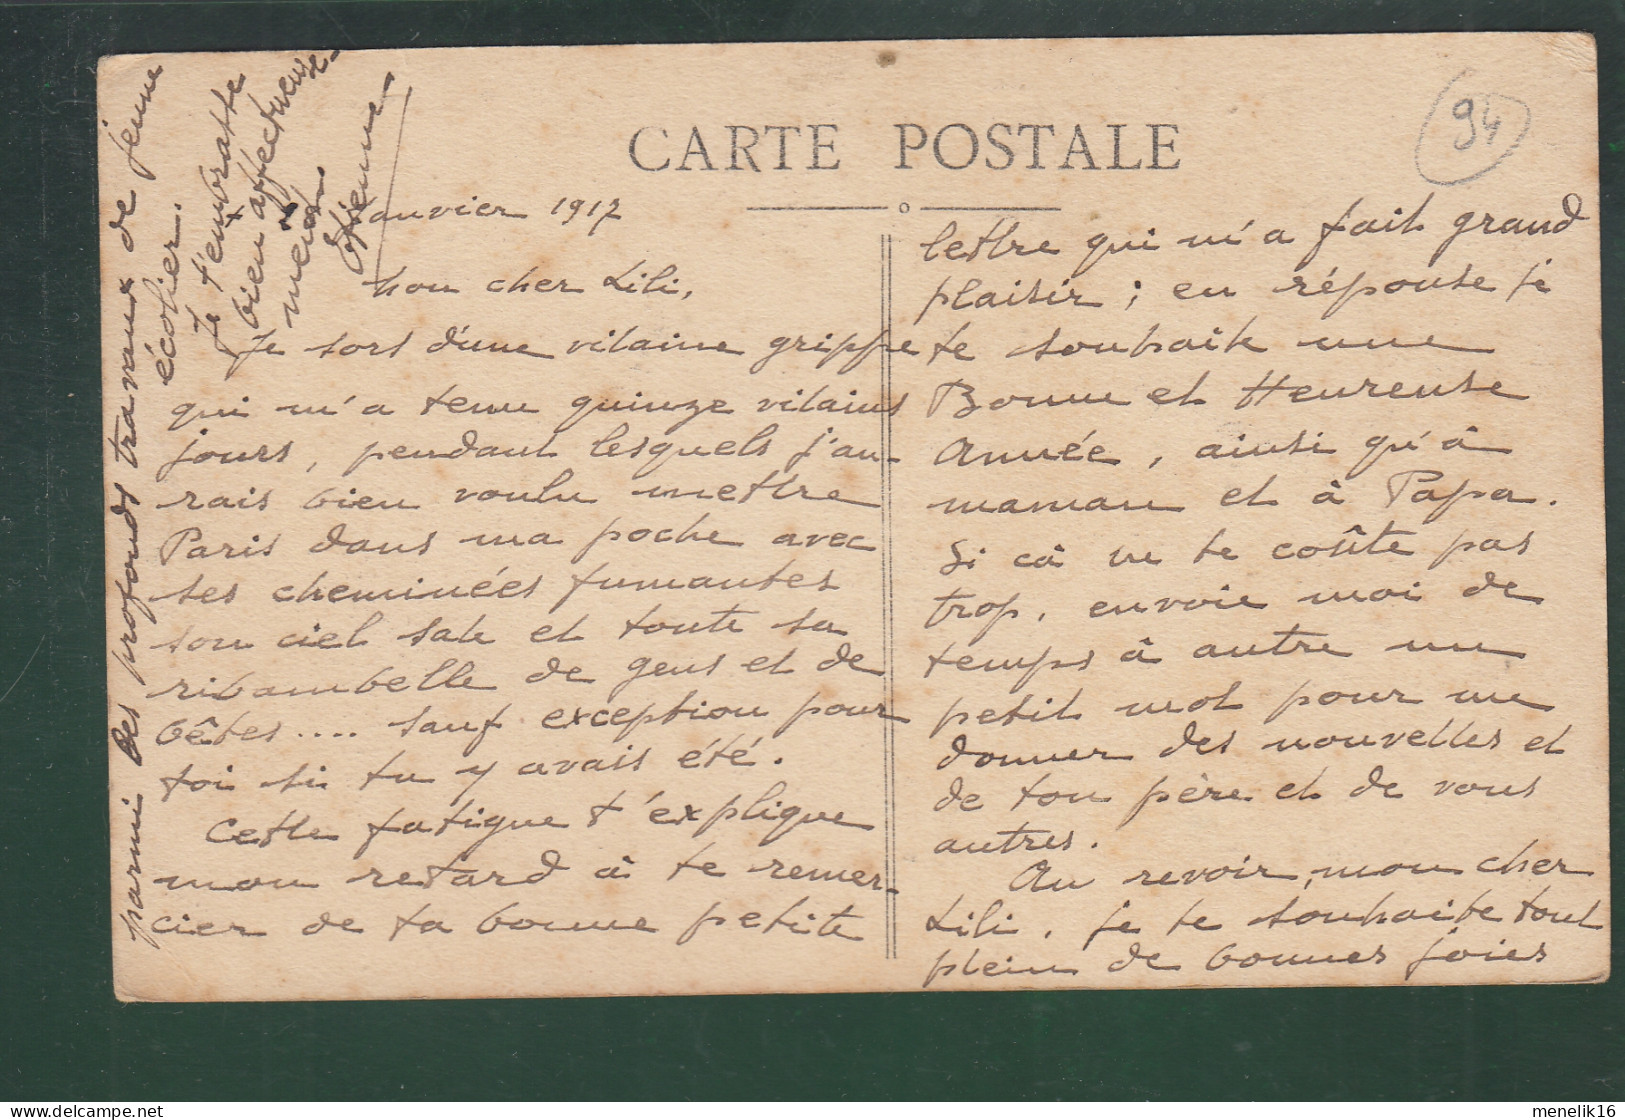 CARTE POSTALE
94
Janvier 1917
Mon cher Lili,
Je sors d'une vilaine grippe
qui m'a tenu quinze vilains
jours, pendant lesquels j'au-
rais bien voulu mettre
Paris dans ma poche avec
ses cheminées fumantes
son ciel sale et toute sa
ribambelle de gens et de
bêtes .... sauf exception pour
toi si tu y avais été.
Cette fatigue t'explique
mon retard à te remer-
cier de ta bonne petite
lettre qui m'a fait grand
plaisir ; en réponse je
te souhaite une
Bonne et Heureuse
Année, ainsi qu'à
maman et à Papa.
Si cà ne te coûte pas
trop, envoie moi de
temps à autre un
petit mot pour me
donner des nouvelles et
de ton père et de vous
autres.
Au revoir, mon cher
Lili, je te souhaite tout
plein de bonnes joies
parmi des profonds travaux de jeune
écolier.
Je t'embrasse
bien affectueuse-
ment
Etienne
menelik16